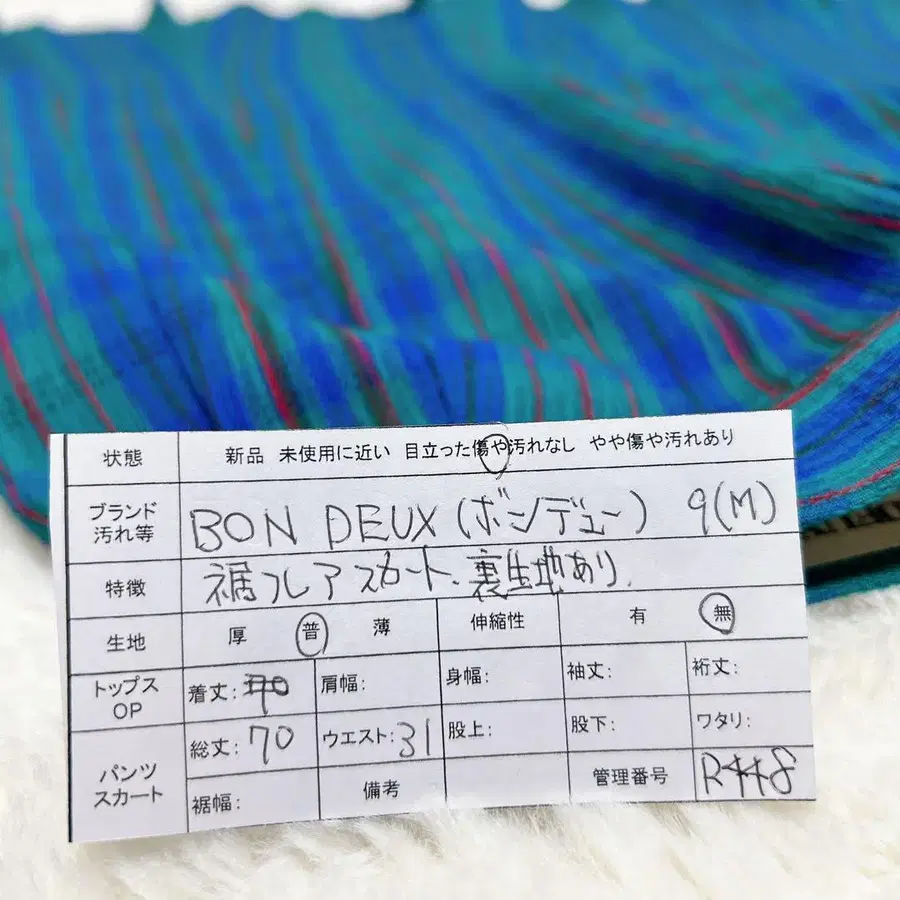 状態 新品 未使用に近い 目立った傷や汚れなし やや傷や汚れあり
ブランド 汚れ等 BON DEUX(ボンデュー) 9(M)
特徴 裾フレアスカート、裏生地あり.
生地 厚 普 薄 伸縮性 有 無
トップス OP 着丈: 70 肩幅: 身幅: 袖丈: 裄丈:
パンツ スカート 総丈: 70 ウエスト: 31 股上: 股下: ワタリ:
裾幅: 備考 管理番号